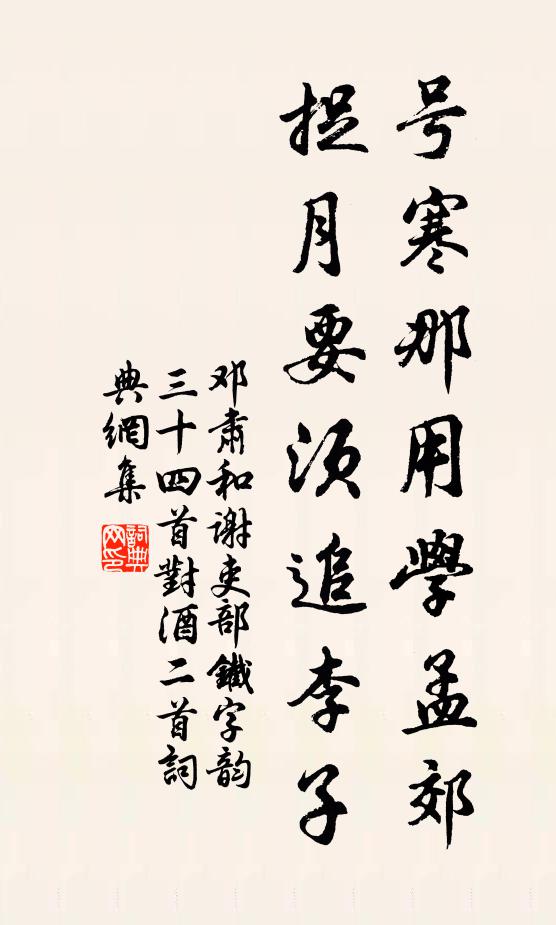 号寒那用學孟郊
捉月要须追李子
邓肅和谢吏部鐵字韵
三十四首對酒二首詞
典網集
詞典网印